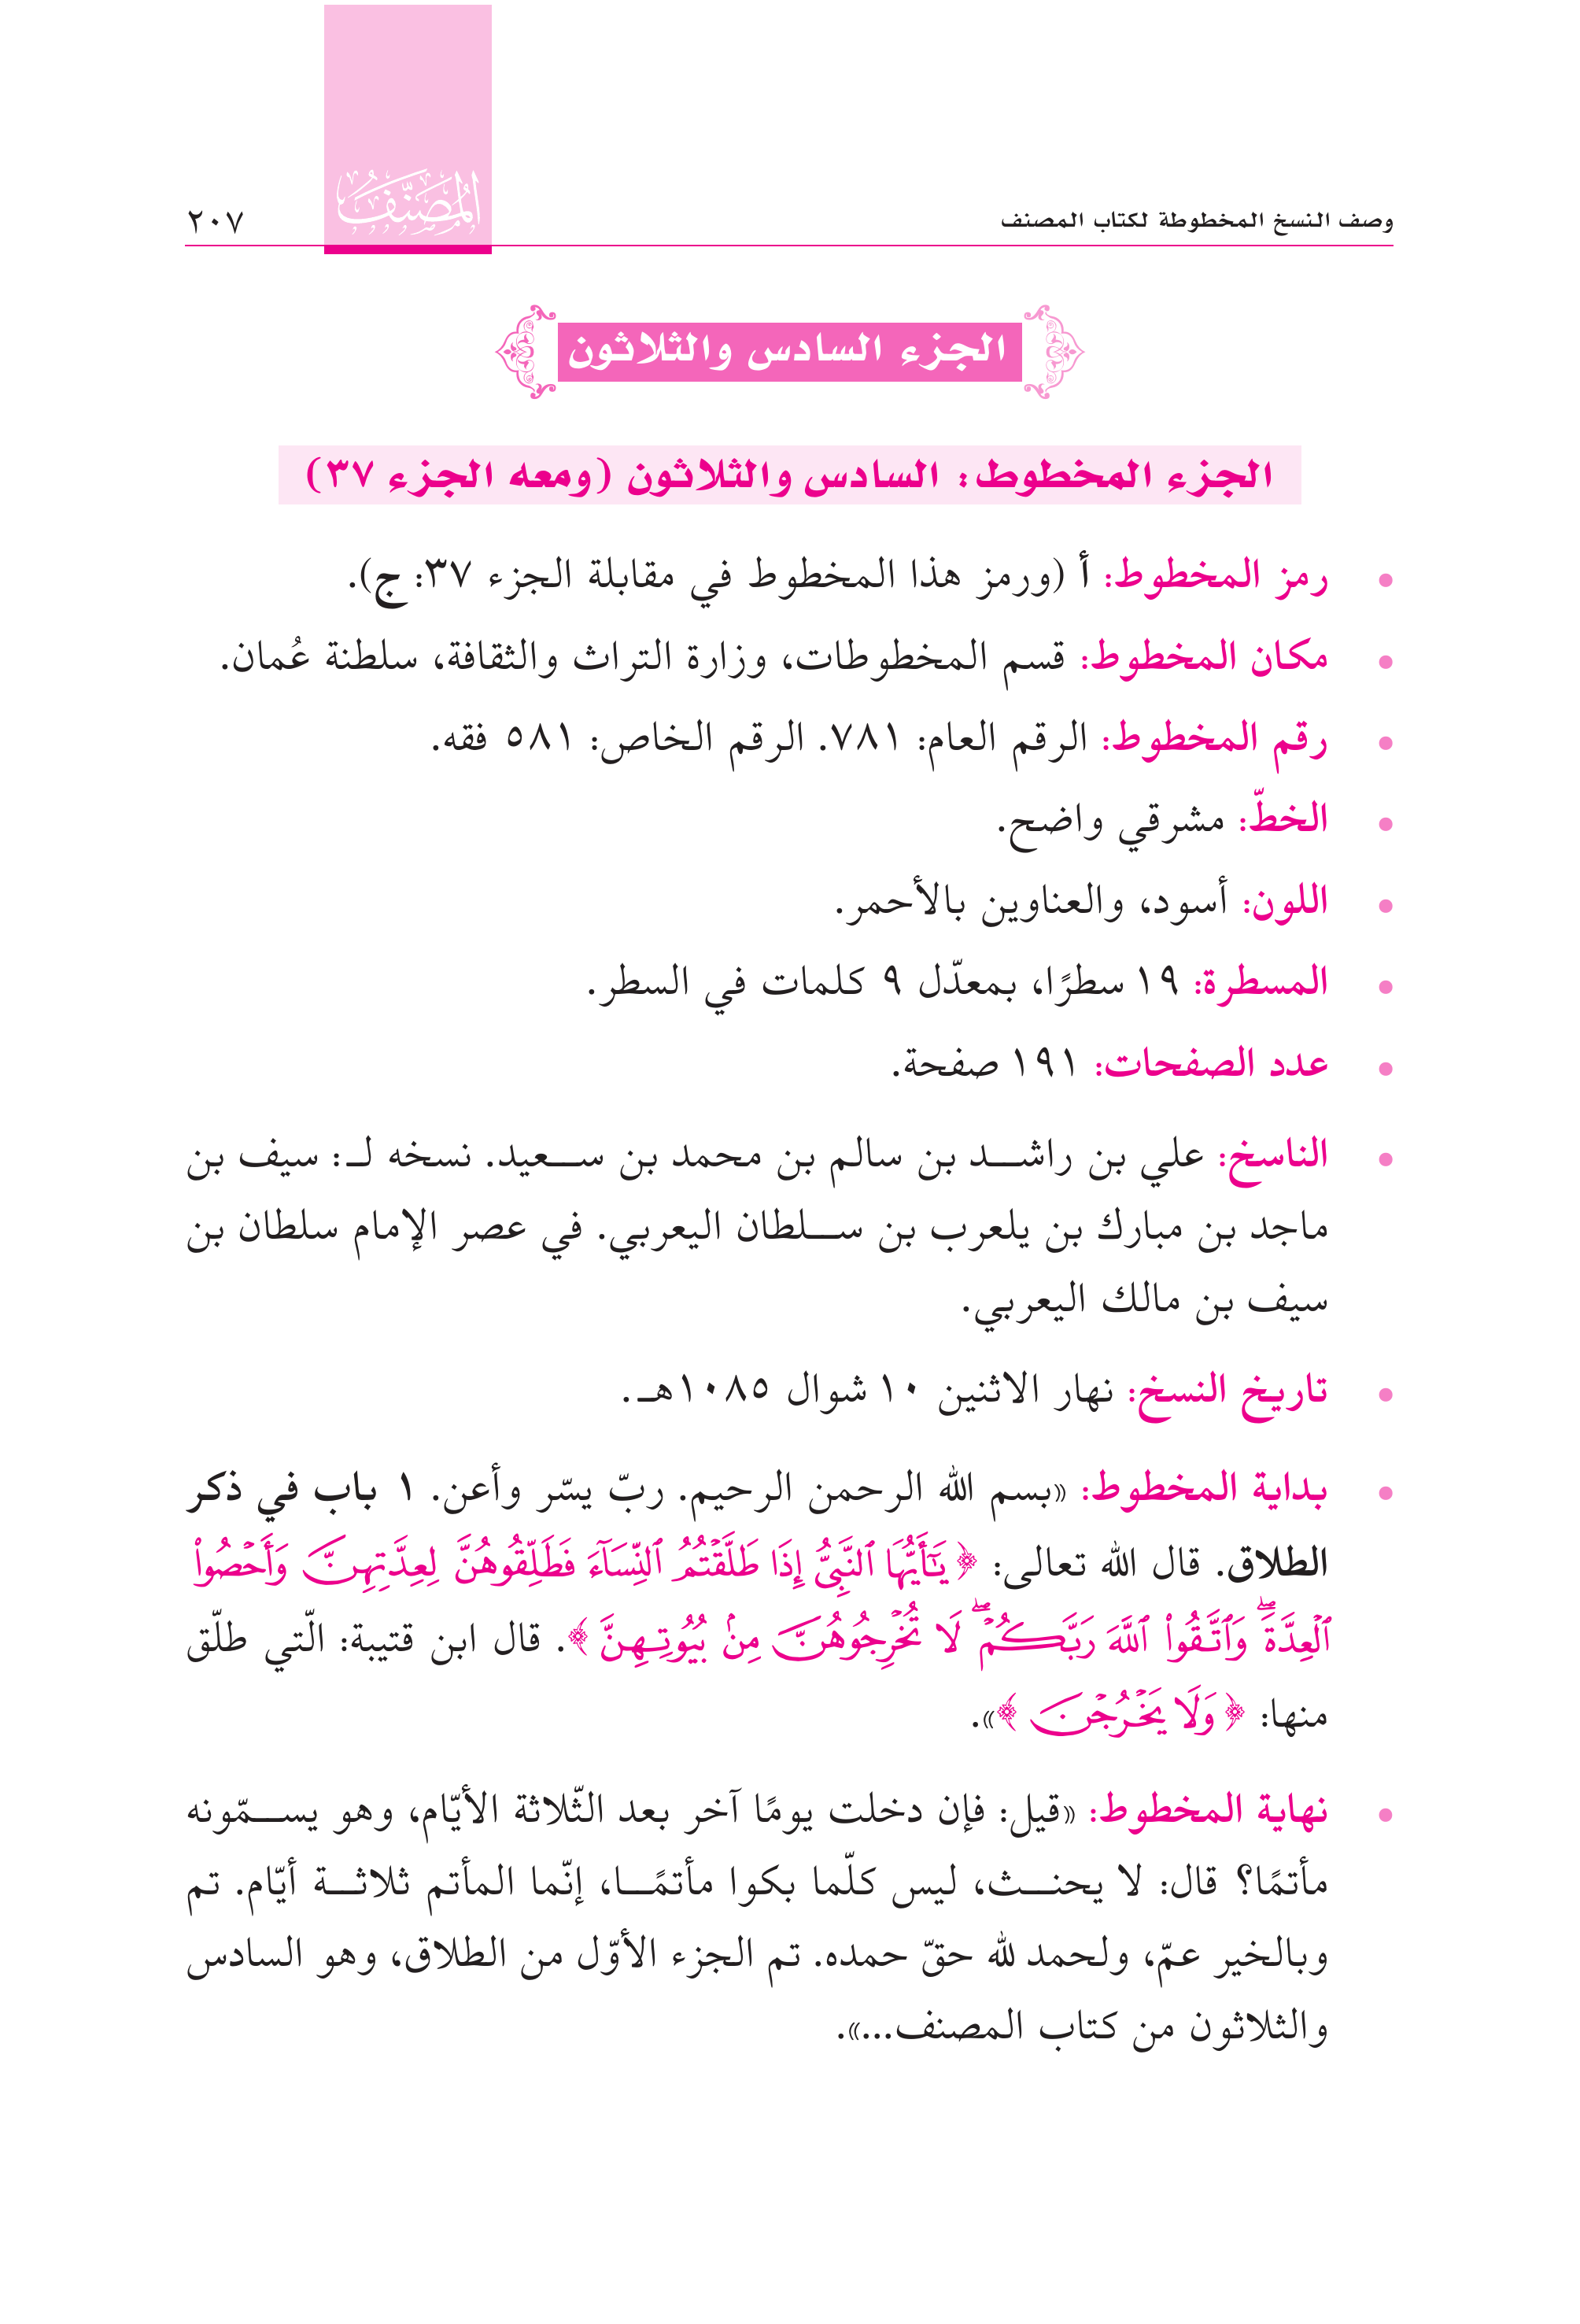 وصف النسخ المخطوطة لكتاب المصنف
المُصَنَّف
٢٠٧
الجزء السادس والثلاثون
الجزء المخطوط: السادس والثلاثون (ومعه الجزء ٣٧)
• رمز المخطوط: أ (ورمز هذا المخطوط في مقابلة الجزء ٣٧: ج).
• مكان المخطوط: قسم المخطوطات، وزارة التراث والثقافة، سلطنة عُمان.
• رقم المخطوط: الرقم العام: ٧٨١. الرقم الخاص: ٥٨١ فقه.
• الخطّ: مشرقي واضح.
• اللون: أسود، والعناوين بالأحمر.
• المسطرة: ١٩ سطرًا، بمعدّل ٩ كلمات في السطر.
• عدد الصفحات: ١٩١ صفحة.
• الناسخ: علي بن راشد بن سالم بن محمد بن سعيد. نسخه لـ: سيف بن
ماجد بن مبارك بن يلعرب بن سلطان اليعربي. في عصر الإمام سلطان بن
سيف بن مالك اليعربي.
• تاريخ النسخ: نهار الاثنين ١٠ شوال ١٠٨٥هـ.
• بداية المخطوط: «بسم الله الرحمن الرحيم. ربّ يسّر وأعن. ١ باب في ذكر
الطلاق. قال الله تعالى: ﴿يَٰٓأَيُّهَا ٱلنَّبِىُّ إِذَا طَلَّقۡتُمُ ٱلنِّسَآءَ فَطَلِّقُوهُنَّ لِعِدَّتِهِنَّ وَأَحۡصُواْ
ٱلۡعِدَّةَۖ وَٱتَّقُواْ ٱللَّهَ رَبَّكُمۡۖ لَا تُخۡرِجُوهُنَّ مِنۢ بُيُوتِهِنَّ﴾. قال ابن قتيبة: الّتي طلّق
منها: ﴿وَلَا يَخۡرُجۡنَ﴾».
• نهاية المخطوط: «قيل: فإن دخلت يومًا آخر بعد الثّلاثة الأيّام، وهو يسمّونه
مأتمًا؟ قال: لا يحنث، ليس كلّما بكوا مأتمًا، إنّما المأتم ثلاثة أيّام. تم
وبالخير عمّ، ولحمد لله حقّ حمده. تم الجزء الأوّل من الطلاق، وهو السادس
والثلاثون من كتاب المصنف...».